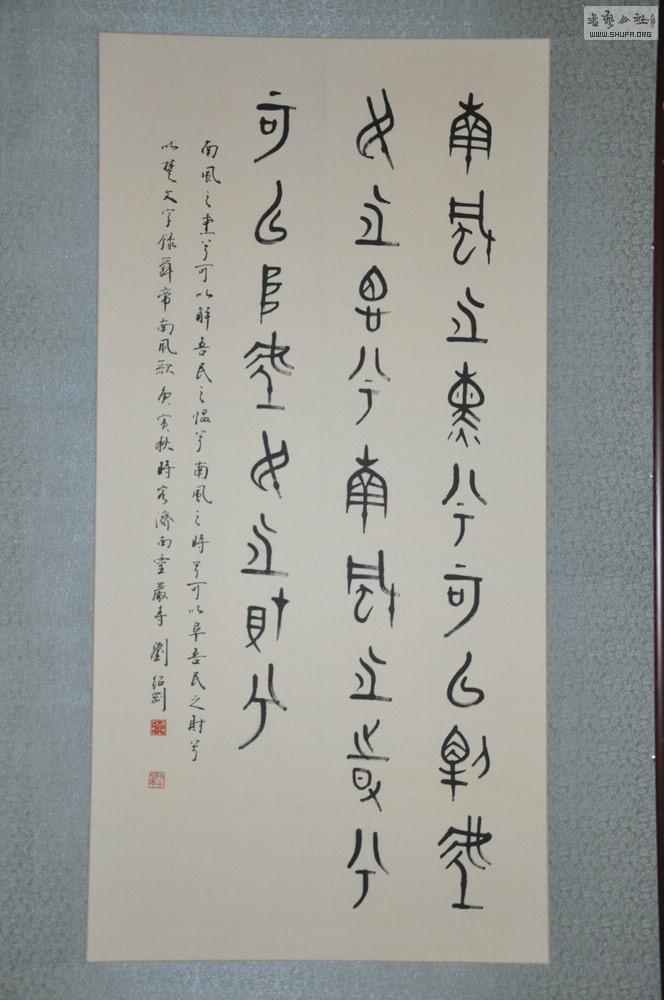 南風之熏兮可以解吾
民之慍兮南風之時兮
可以阜吾民之財兮
南風之熏兮可以解吾民之慍兮南風之時兮可以阜吾民之財兮
以楚文字錄舜帝南風歌庚寅秋時客濟南靈巖寺劉紹剛
書藝公社
WWW.SHUFA.ORG